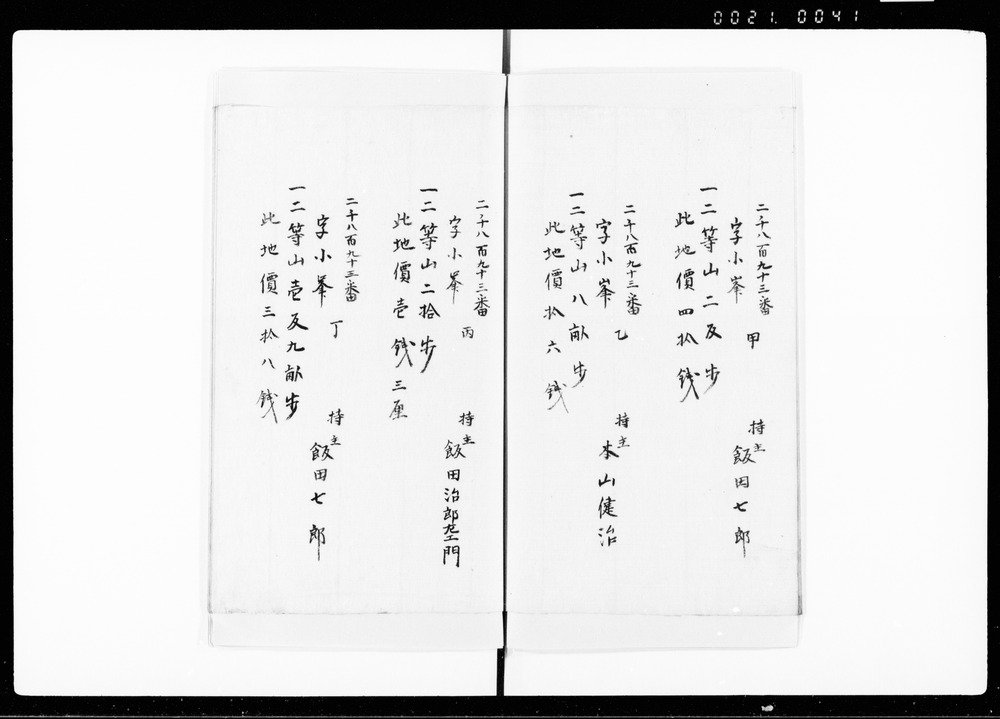 0021.0041
二千八百九十三番
字小峯 甲
一二等山二反歩
此地價四拾錢
持主 飯田七郎
二千八百九十三番
字小峯 乙
一二等山八畝歩
此地價拾六錢
持主 本山健治
二千八百九十三番
字小峯 丙
一二等山二拾歩
此地價壱錢三厘
持主 飯田治郎左エ門
二千八百九十三番
字小峯 丁
一二等山壱反九畝歩
此地價三拾八錢
持主 飯田七郎